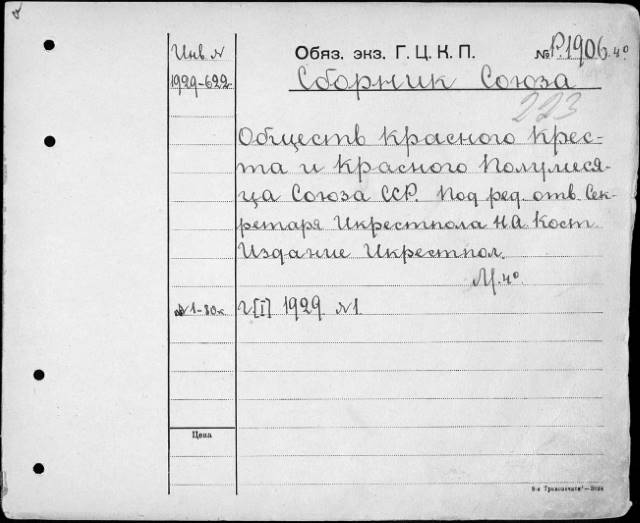 Инв N
Обяз. экз. Г. Ц. К. П.
№ Р.1906.4°
1929-622
Сборник Союза
223
Обществ Красного Крес-
та и Красного Полумеся-
ца Союза ССР. Под ред. отв. Сек-
ретаря Икрестпола Н.А. Кост.
Издание Икрестпол.
М. 4°
N1-80к
г[I] 1929. N1.
Цена